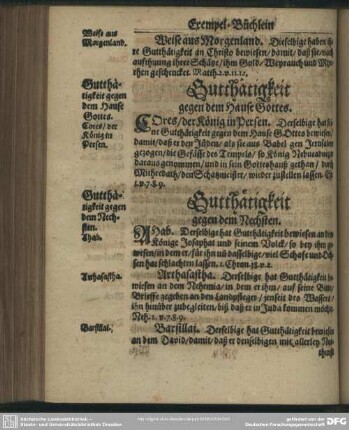 Exempel-Büchlein
Weise aus
Morgenland.
Weise aus Morgenland. Dieselbige haben ih-
re Gutthätigkeit an Christo bewiesen/ damit/ daß sie/ nach
aufthuung ihrer Schätze/ ihm Gold/ Weyrauch und Myr-
rhen geschencket. Matth. 2. v. 11. 12.
Gutthä-
tigkeit gegen
dem Hause
Gottes.
Cores/ der
König in
Persen.
Gutthätigkeit
gegen dem Hause Gottes.
Cores/ der König in Persen. Derselbige hat sei-
ne Gutthätigkeit gegen dem Hause Gottes bewiesen/
damit/ daß er den Jüden/ als sie aus Babel gen Jerusalem
gezogen/ die Gefässe des Tempels/ so König Nebucadnezar
daraus genommen/ und in sein Gotteshauß gethan/ durch
Mithredath/ den Schatzmeister/ wieder zustellen lassen. Es.
1. v. 7. 8. 9.
Gutthä-
tigkeit gegen
dem Nech-
sten.
Ahab.
Gutthätigkeit
gegen dem Nechsten.
Ahab. Derselbige hat Gutthätigkeit bewiesen an dem
Könige Josaphat und seinem Volck/ so bey ihm ge-
wesen/ in dem er/ für ihn und dasselbige/ viel Schafe und Och-
sen hat schlachten lassen. 2. Chron. 18. v. 2.
Arthasastha.
Arthasastha. Derselbige hat Gutthätigkeit be-
wiesen an dem Nehemia/ in dem er ihm/ auf seine Bitt/
Briefe gegeben an den Landpfleger/ jenseit des Wassers/
ihn hinüber zubegleiten/ biß daß er in Juda kommen möchte.
Neh. 2. v. 7. 8. 9.
Barsillai.
Barsillai. Derselbige hat Gutthätigkeit bewiesen
an dem David/ damit/ daß er denselbigen mit allerley No-
thurft